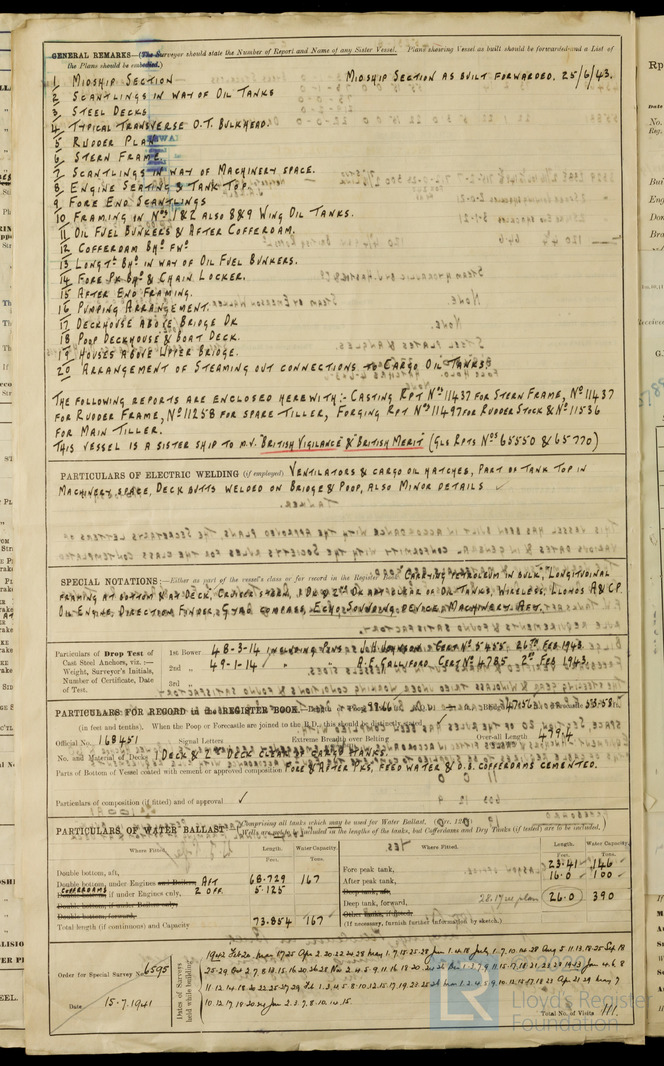 GENERAL REMARKS—(The Surveyor should state the Number of Report and Name of any Sister Vessel. Plans showing Vessel as built should be forwarded and a List of
the Plans should be embodied.)
1 MIDSHIP SECTION MIDSHIP SECTION AS BUILT FORWARDED. 25/6/43.
2 SCANTLINGS IN WAY OF OIL TANKS
3 STEEL DECKS
4 TYPICAL TRANSVERSE O.T. BULKHEAD.
5 RUDDER PLAN
6 STERN FRAME.
7 SCANTLINGS IN WAY OF MACHINERY SPACE.
8 ENGINE SEATING & TANK TOP.
9 FORE END SCANTLINGS
10 FRAMING IN Nos 1 & 2 ALSO 8 & 9 WING OIL TANKS.
11 OIL FUEL BUNKERS & AFTER COFFERDAM.
12 COFFERDAM BHD FWD
13 LONGTL BHD IN WAY OF OIL FUEL BUNKERS.
14 FORE PK BHD & CHAIN LOCKER.
15 AFTER END FRAMING.
16 PUMPING ARRANGEMENT.
17 DECKHOUSE ABOVE BRIDGE DK
18 POOP DECKHOUSE & BOAT DECK.
19 HOUSES ABOVE UPPER BRIDGE.
20 ARRANGEMENT OF STEAMING OUT CONNECTIONS TO CARGO OIL TANKS.
THE FOLLOWING REPORTS ARE ENCLOSED HEREWITH:- CASTING RPT Nos 11437 FOR STERN FRAME, No 11437
FOR RUDDER FRAME, No 11258 FOR SPARE TILLER, FORGING RPT Nos 11497 FOR RUDDER STOCK & No 11536
FOR MAIN TILLER.
THIS VESSEL IS A SISTER SHIP TO M.V. "BRITISH VIGILANCE" & BRITISH MERIT" (GLS RPTS Nos 65550 & 65770)
PARTICULARS OF ELECTRIC WELDING (if employed) VENTILATORS & CARGO OIL HATCHES, PART OF TANK TOP IN
MACHINERY SPACE, DECK BUTTS WELDED ON BRIDGE & POOP, ALSO MINOR DETAILS ✓
SPECIAL NOTATIONS:—Either as part of the vessel's class or for record in the Register Book. CARRYING PETROLEUM IN BULK, LONGITUDINAL
FRAMING AT BOTTOM & AT DECK, CRUISER STERN, 1 DK & 2ND DK CLEAR OF OIL TANKS, WIRELESS, LLOYDS A & CP
OIL ENGINE, DIRECTION FINDER, GYRO COMPASS, ECHO SOUNDING DEVICE, MACHINERY AFT.
Particulars of Drop Test of
Cast Steel Anchors, viz.:—
Weight, Surveyor's Initials,
Number of Certificate, Date
of Test.
1st Bower 48-3-14 INCLUDING PINS J.H. CERT No 5455 26TH FEB 1943
2nd " 49-1-14 " " A.E. GALLIFORD. CERT No 4785 2ND FEB 1943
3rd "
PARTICULARS FOR RECORD in the REGISTER BOOK.
(in feet and tenths). When the Poop or Forecastle are joined to the B.D., this should be distinctly stated ✓
Official No. 168451 Signal Letters Extreme Breadth over Belting Over-all Length 479.4
No. and Material of Decks 1 DECK & 2ND DECK CLEAR OF CARGO TANKS.
Parts of Bottom of Vessel coated with cement or approved composition FORE & AFTER PKS, FEED WATER & D.B. COFFERDAMS CEMENTED.
Particulars of composition (if fitted) and of approval ✓
PARTICULARS OF WATER BALLAST—(Comprising all tanks which may be used for Water Ballast.
Wells are not to be included in the lengths of the tanks, but Cofferdams and Dry Tanks (if tested) are to be included.)
Where Fitted. Length. Feet. Water Capacity. Tons. Where Fitted. Length. Feet. Water Capacity. Tons.
Double bottom, aft, Fore peak tank, 23.41 146
Double bottom, under Engines and Boilers, AFT 68.729 167 After peak tank, 16.0 100
COFFERDAMS if under Engines only, 2 OFF. 5.125 Deep tank, aft,
Double bottom, if under Boilers only, Deep tank, forward, 28.17 see plan 26.0 390
Double bottom, forward, Other tanks, if fitted,
Total length (if continuous) and Capacity 73.854 167 (If necessary, furnish further information by sketch.)
Order for Special Survey No. 6595
Date 15.7.1941
Dates of Surveys held while building
Total No. of Visits 111.
Lloyd's Register
Foundation